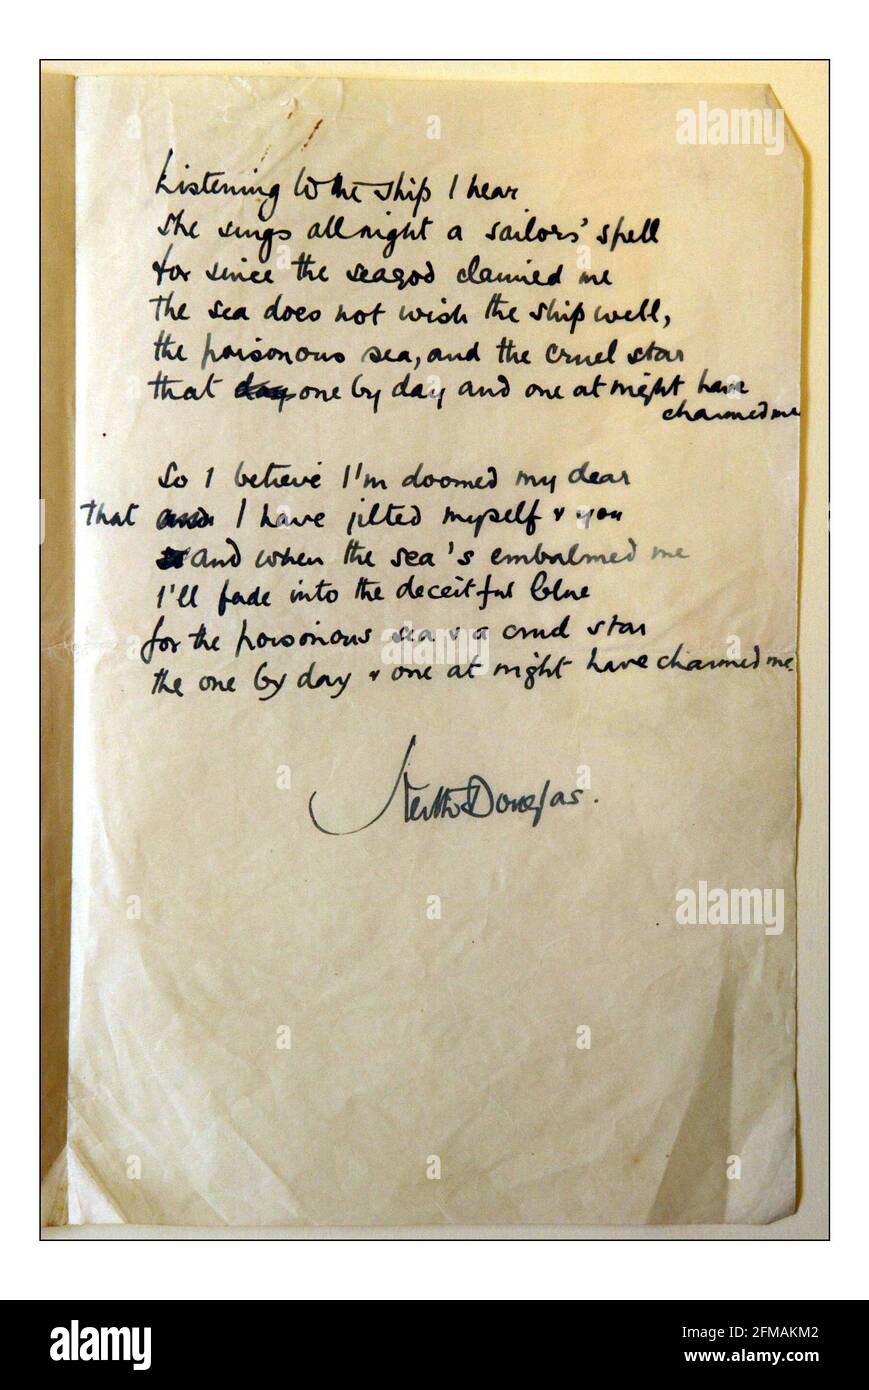 Listening to the ship I hear
she sings all night a sailors' spell
for since the seagod claimed me
the sea does not wish the ship well,
the poisonous sea, and the cruel star
that day one by day and one at night have
charmed me
So I believe I'm doomed my dear
that I have jilted myself & you
and when the sea's embalmed me
I'll fade into the deceitful blue
for the poisonous sea & a cruel star
the one by day & one at night have charmed me.
Keith Douglas.
alamy
alamy
alamy
alamy
Image ID: 2FMAKM2
www.alamy.com